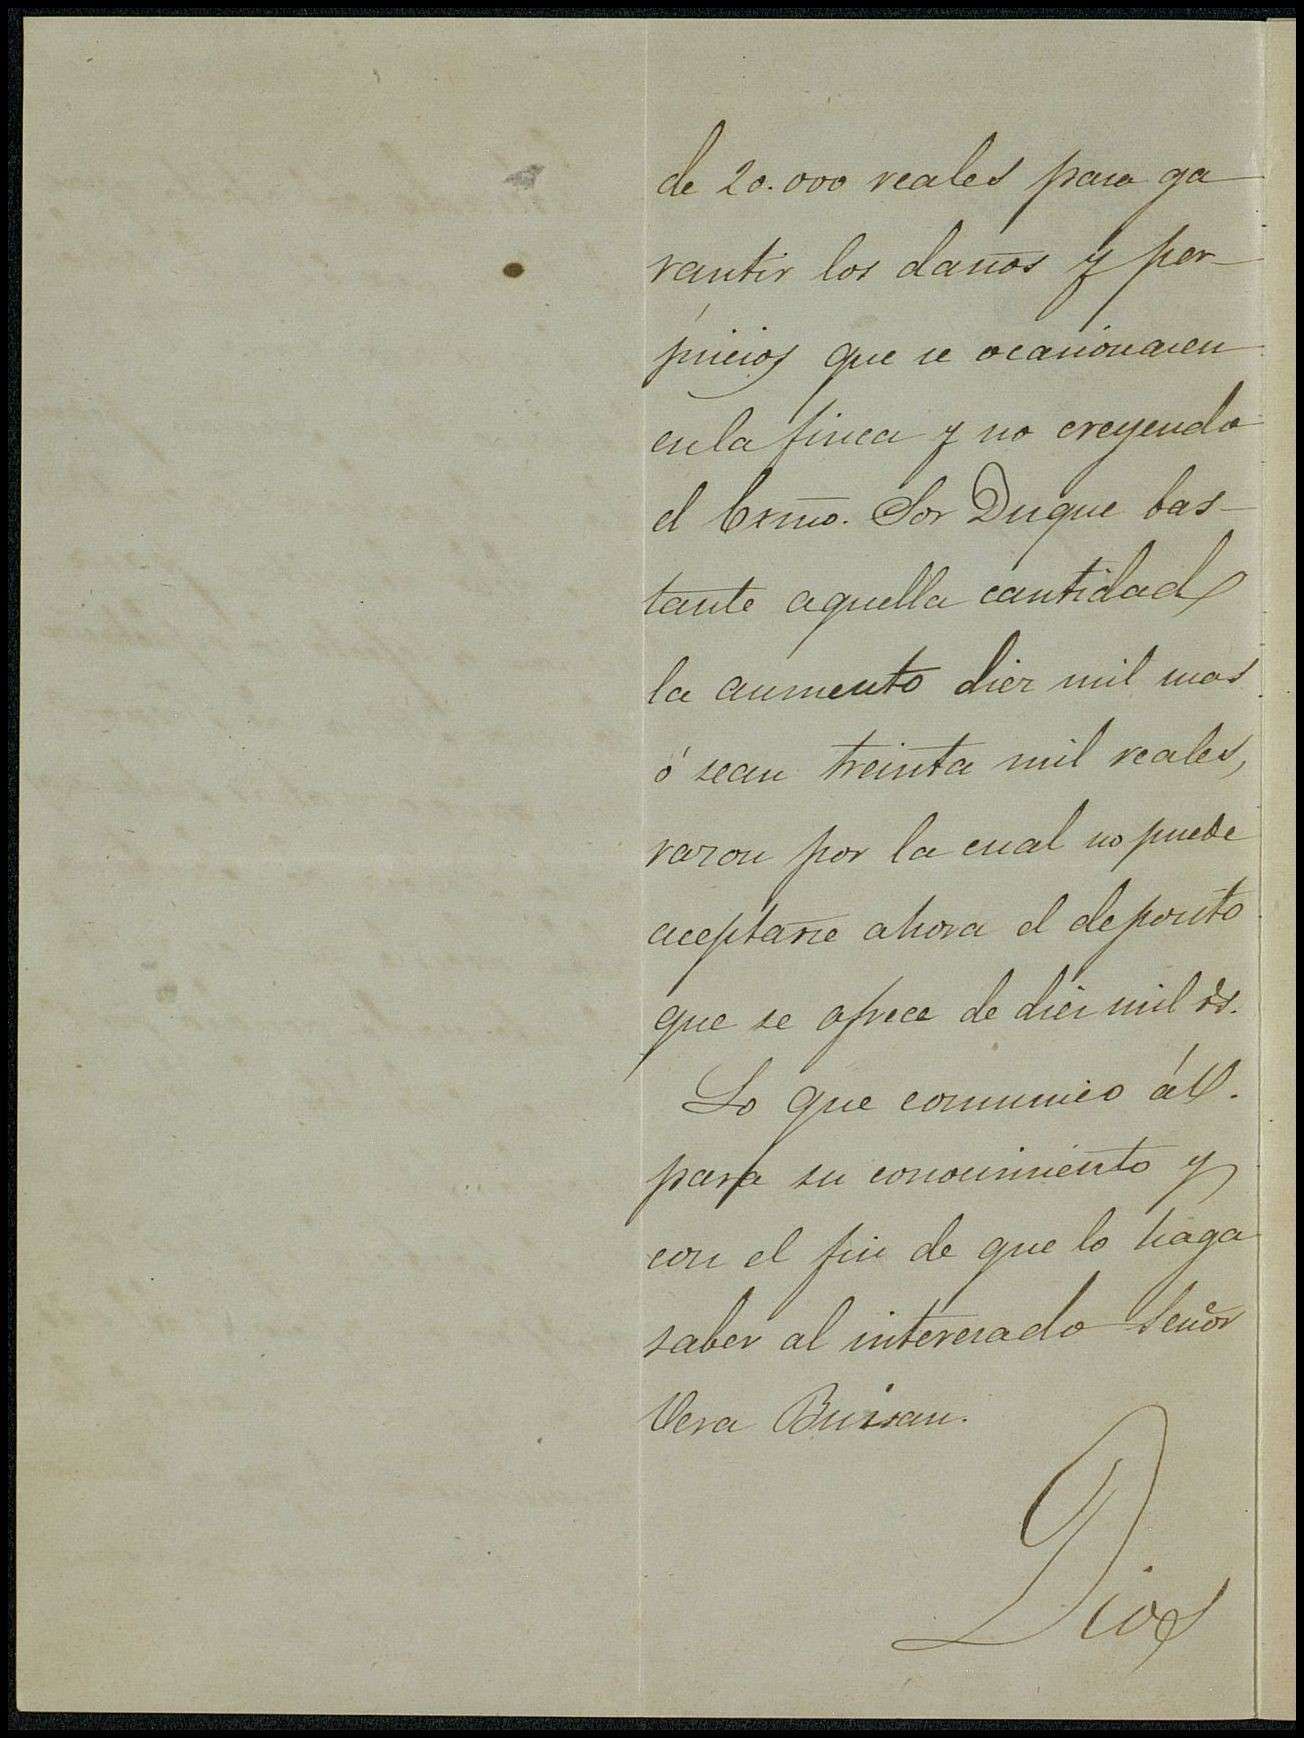 de 20.000 reales para ga
rantir los daños y per-
juicios que se ocasionasen
en la finca y no creyendo
el Exmo. Sor Duque bas-
tante aquella cantidad
la aumento diez mil mas
ó sean treinta mil reales,
razon por la cual no puede
aceptarse ahora el deposito
que se ofrece de diez mil rs.
Lo que comunico á V.
para su conocimiento y
con el fin de que lo haga
saber al interesado Señor
Vera Buisan.
Dios